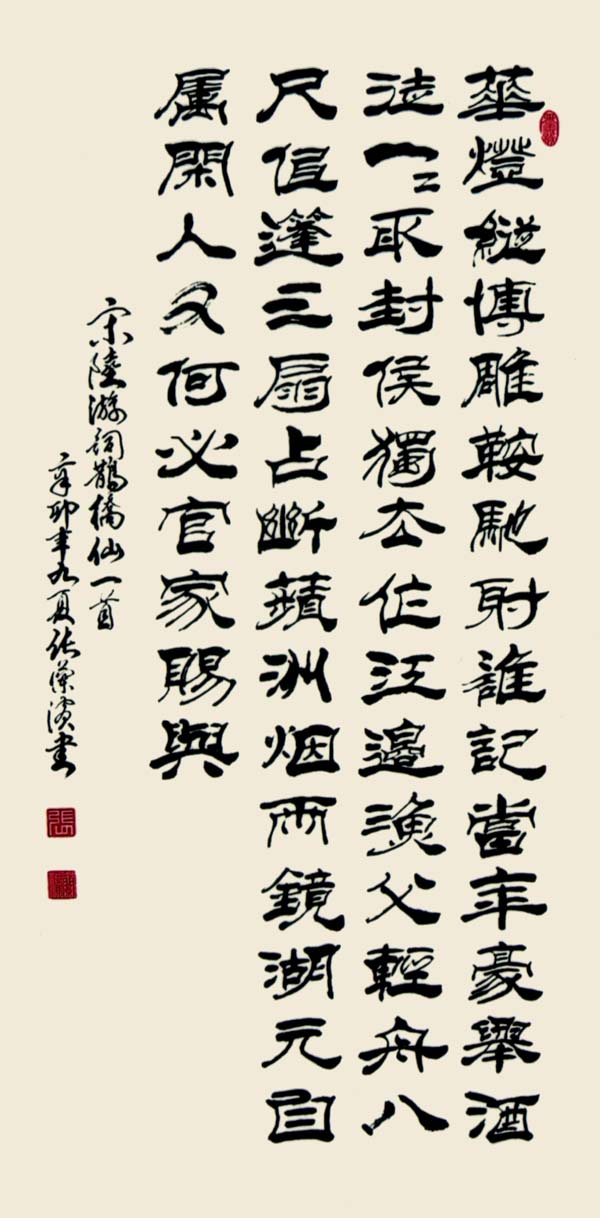 華燈縱博雕鞍馳射誰記當年豪舉酒
徒一〻取封侯獨去作江邊漁父輕舟八
尺低篷三扇占斷蘋洲烟雨鏡湖元自
属閑人又何必官家賜與
宋陸游詞鵲橋仙一首
辛卯年九夏张書
張